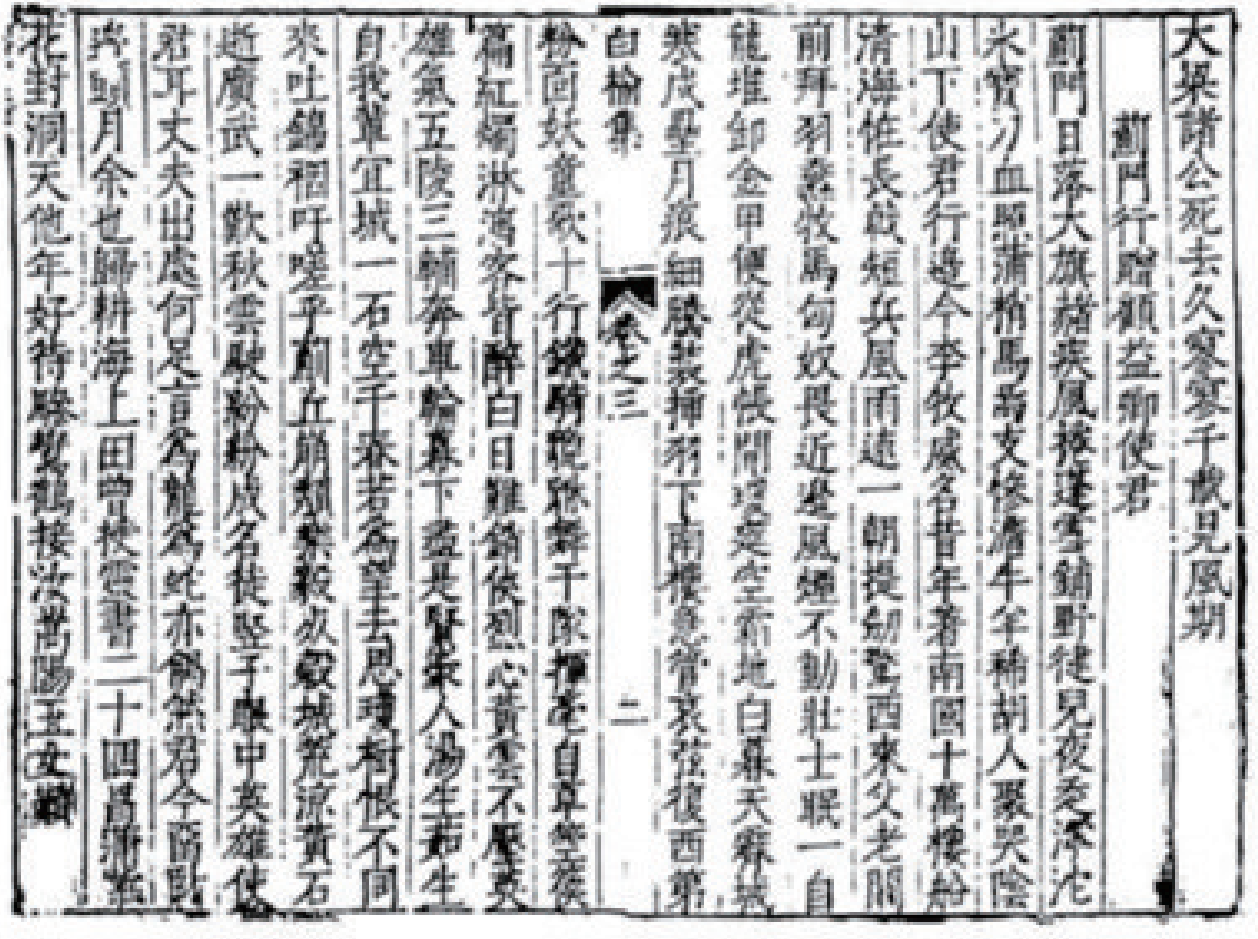 大梁諸公死去久寥寥千載見風期
薊門行贈顧益卿使君
薊門日落大旗赭疾風捲蓬雪鋪野健兒夜死滹沱
水寶刀血照蒲梢馬高支慘澹牛羊稀胡人聚哭陰
山下使君行邊今李牧威名昔年著南國十萬樓船
清海惟長戟短兵風雨速一朝提劒驚西來父老關
前拜羽麾牧馬匈奴畏近邊風煙不動壯士眠一自
龍堆卸金甲便從虎帳開瓊筵空霜地白暮天
寒戍壘月痕細勝裘揮羽下南樓急管哀弦復西第
白榆集
卷之三
二
粉面妖童歌十行鐵騎舞千隊揮毫自草箜篌
篇紅燭淋漓客皆醉白日難銷俠烈心黃雲不壓英
雄氣五陵三輔奔車輪幕下盡是賢豪人湯生茹生
自我輩宜城一石空千春若為望去思瓊樹恨不同
來吐錦裀吁嗟乎薊丘崩頹樂毅城荒涼黃石
逝廣武一歎秋雲駛紛紛成名徒豎子眼中英雄使
君耳丈夫出處何足言為龍為蛇亦偶然君今
月余也歸耕海上田曾校雲書二十四菖蒲
花封洞天他年好待驂鸞鶴接汝嵩陽玉女